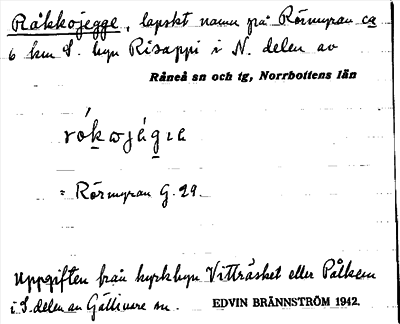 Råkkojegge, lapskt namn på Rörmyran ca
6 km S. byn Risappi i N. delen av
Råneå sn och tg, Norrbottens län
= Rörmyran G. 29.
Uppgiften från kyrkbyn Vitträsket eller Pålkem
i S. delen av Gällivare sn. EDVIN BRÄNNSTRÖM 1942.